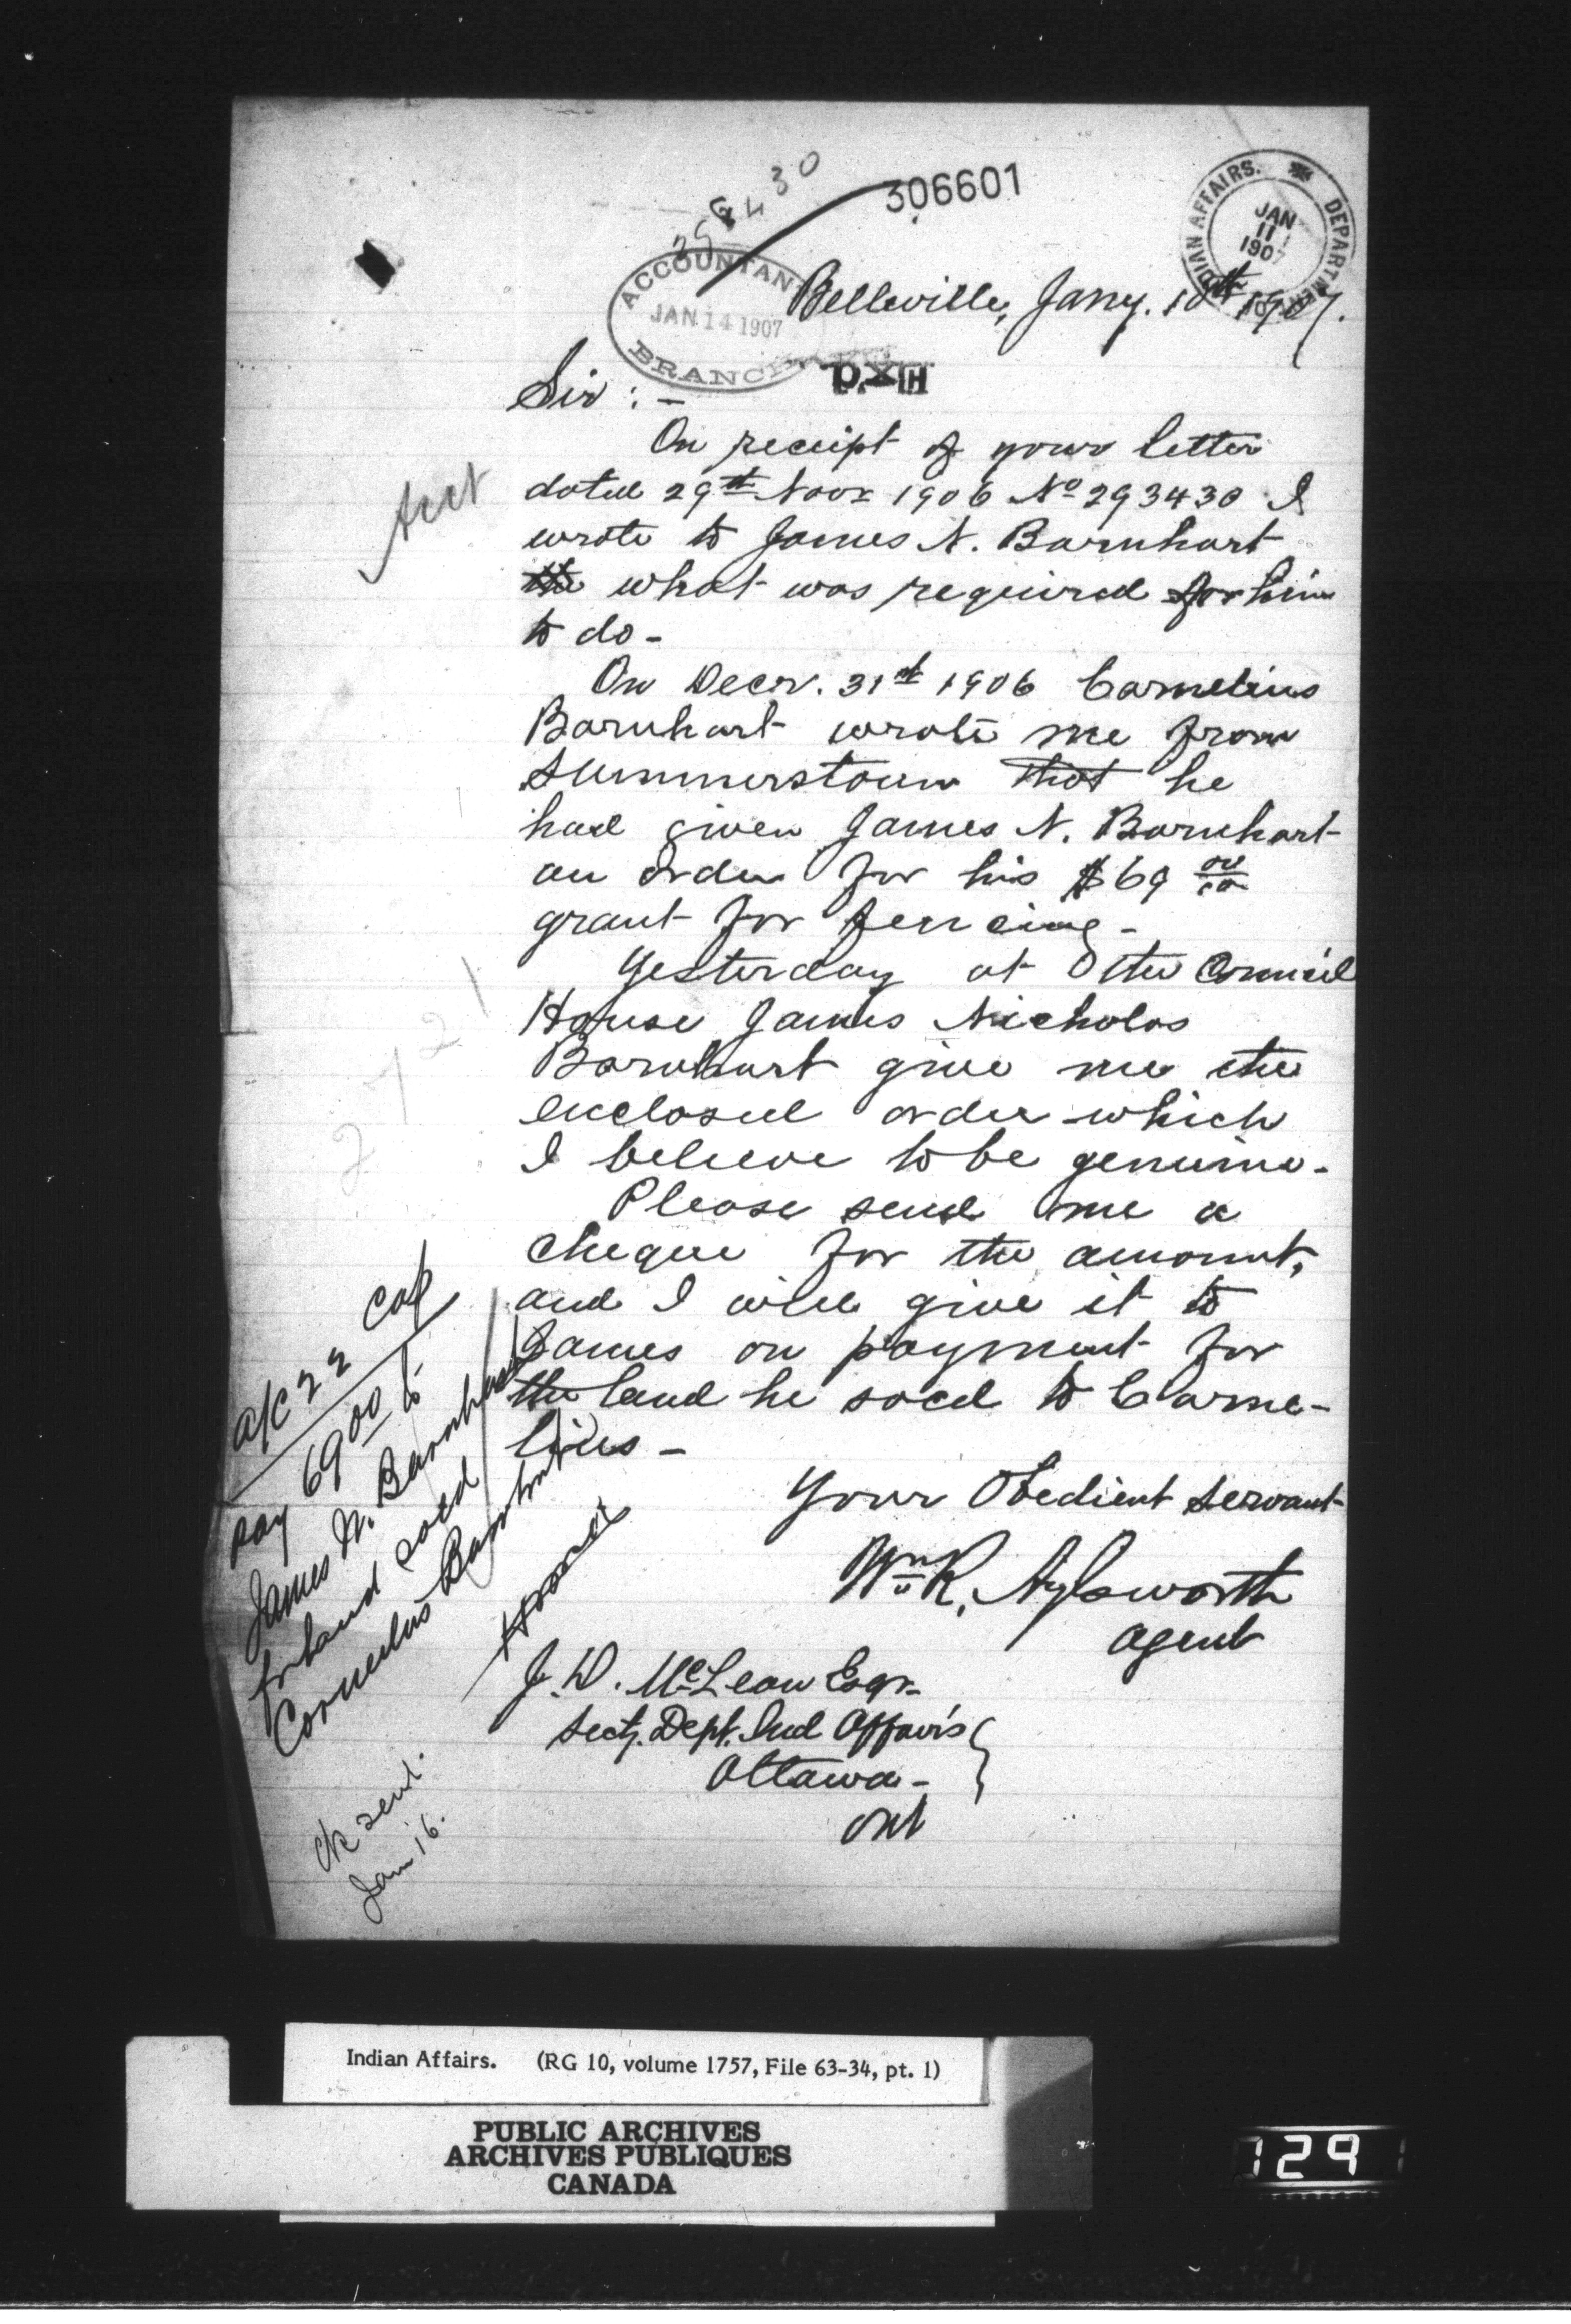 306601
INDIAN AFFAIRS. DEPARTMENT
JAN
11
1907
ACCOUNTANT
JAN 14 1907
BRANCH
Belleville, Jany. 10th 1907.
D. H
Sir : -
Acct
On receipt of your letter
dated 29th Novr 1906 No 293430 I
wrote to James N. Barnhart
what was required for him
to do -
On Decr. 31st 1906 Cornelius
Barnhart wrote me from
Summerstown that he
had given James N. Barnhart
an order for his $69 00/100
grant for fencing -
Yesterday at the Council
House James Nicholas
Barnhart give me the
enclosed order which
I believe to be genuine -
Please send me a
cheque for the amount,
and I will give it to
James on payment for
the land he sold to Corne-
lius -
Your Obedient Servant
Wm R. Aylsworth
agent
J. D. McLean Esqr.
Secty. Dept. Ind Affairs
Ottawa -
Ont
a/c 22 Cap
Pay 69 00 to
James N. Barnhart
for land sold
Cornelius Barnhart
Ck sent.
Jan 16.
Indian Affairs. (RG 10, volume 1757, File 63-34, pt. 1)
PUBLIC ARCHIVES
ARCHIVES PUBLIQUES
CANADA
129